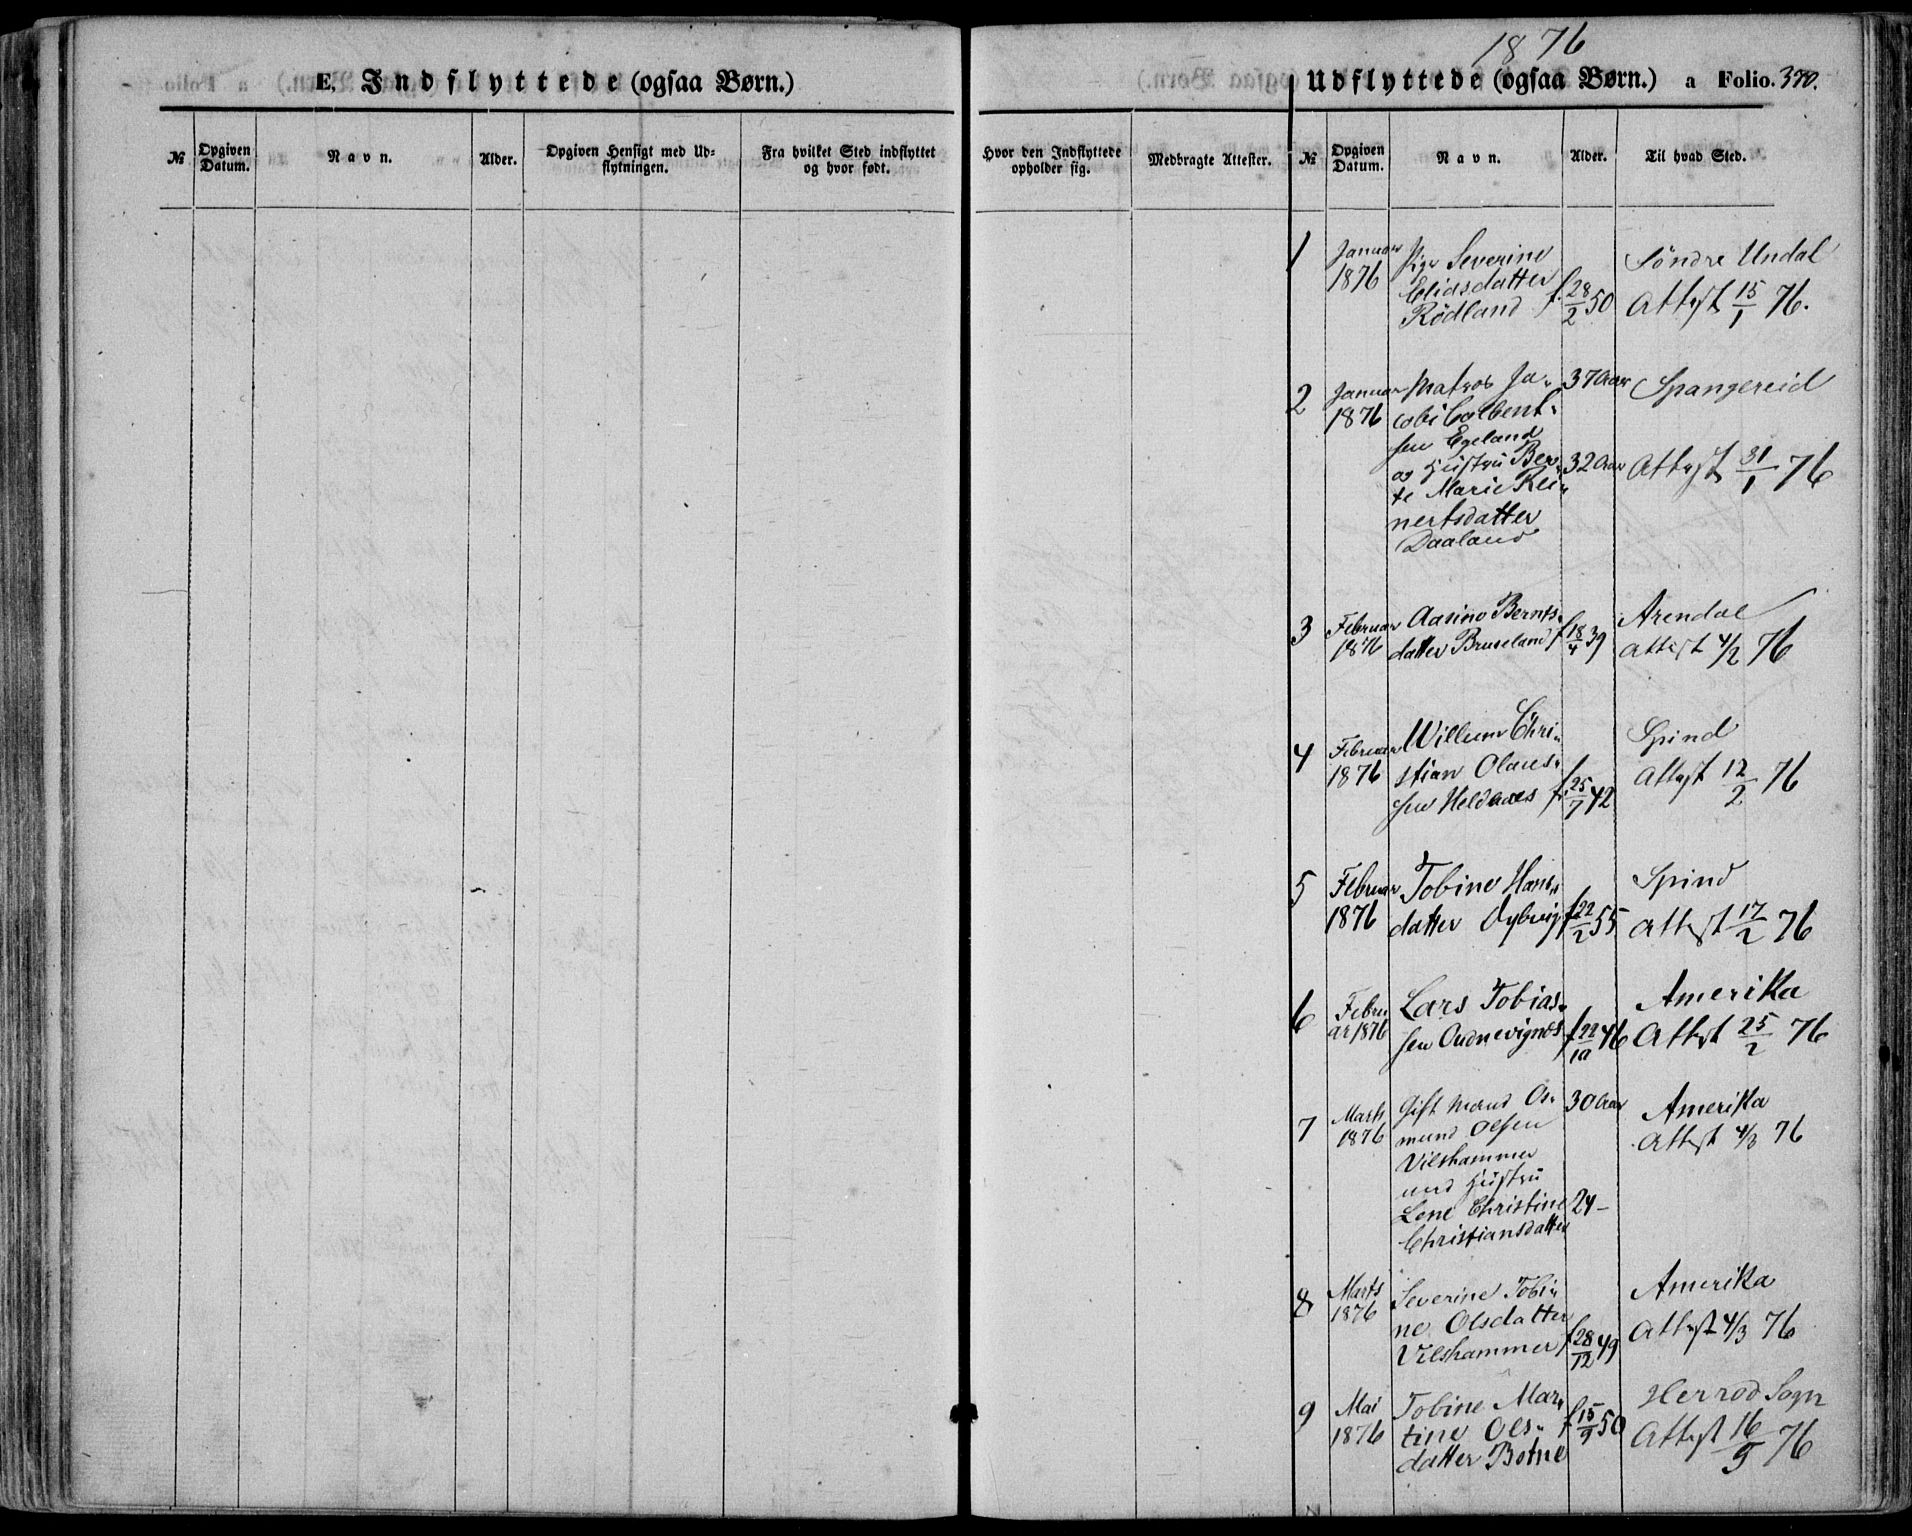 1876
E. Indflyttede (ogsaa Børn.)
Udflyttede (ogsaa Børn.) a Folio. 370.
№
Opgiven Datum.
Navn.
Alder.
Opgiven Hensigt med Ud=
flytningen.
Fra hvilket Sted indflyttet
og hvor født.
Hvor den Indflyttede
opholder sig.
Medbragte Attester.
№
Opgiven Datum.
Navn.
Alder.
Til hvad Sted.
1 Januar Pige Severine Söndre Undal
1876 Eliasdatter f. 28/2 50 Attest 15/1 76.
Rödland
2 Januar Matros Ja- 37 Aar Spangereid
1876 cob
sen Egeland
og Hustru Ber- 32 Aar Attest 31/1 76
te Marie Rei-
nertsdatter
Daaland
3 Februar Aasine Bernts- Arendal
1876 datter Bruseland f 18/4 39 Attest 4/2 76
4 Februar Willum Chri- Spind
1876 stian Olaus- f. 25/7 42 Attest 12/2 76
sen
5 Februar Tobine Hans- Spind
1876 datter f 22/2 55 Attest 17/2 76
6 Febru Lars Tobias- Amerika
ar 1876 sen f 22/10 46 Attest 25/2 76
7 Marts Gift Mand Os- 30 Aar Amerika
1876 mund Olsen Attest 4/3 76
Vilshammer
med Hustru
Lene Christine 24 –
Christiansdatter
8 Marts Severine Tobi- Amerika
1876 ne Olsdatter Attest 4/3 76
Vilshammer f 28/12 49
9 Mai Tobine Mar- f 15/9 50 Herrad Sogn
1876 tine Ols- Attest 16/5 76
datter Botne